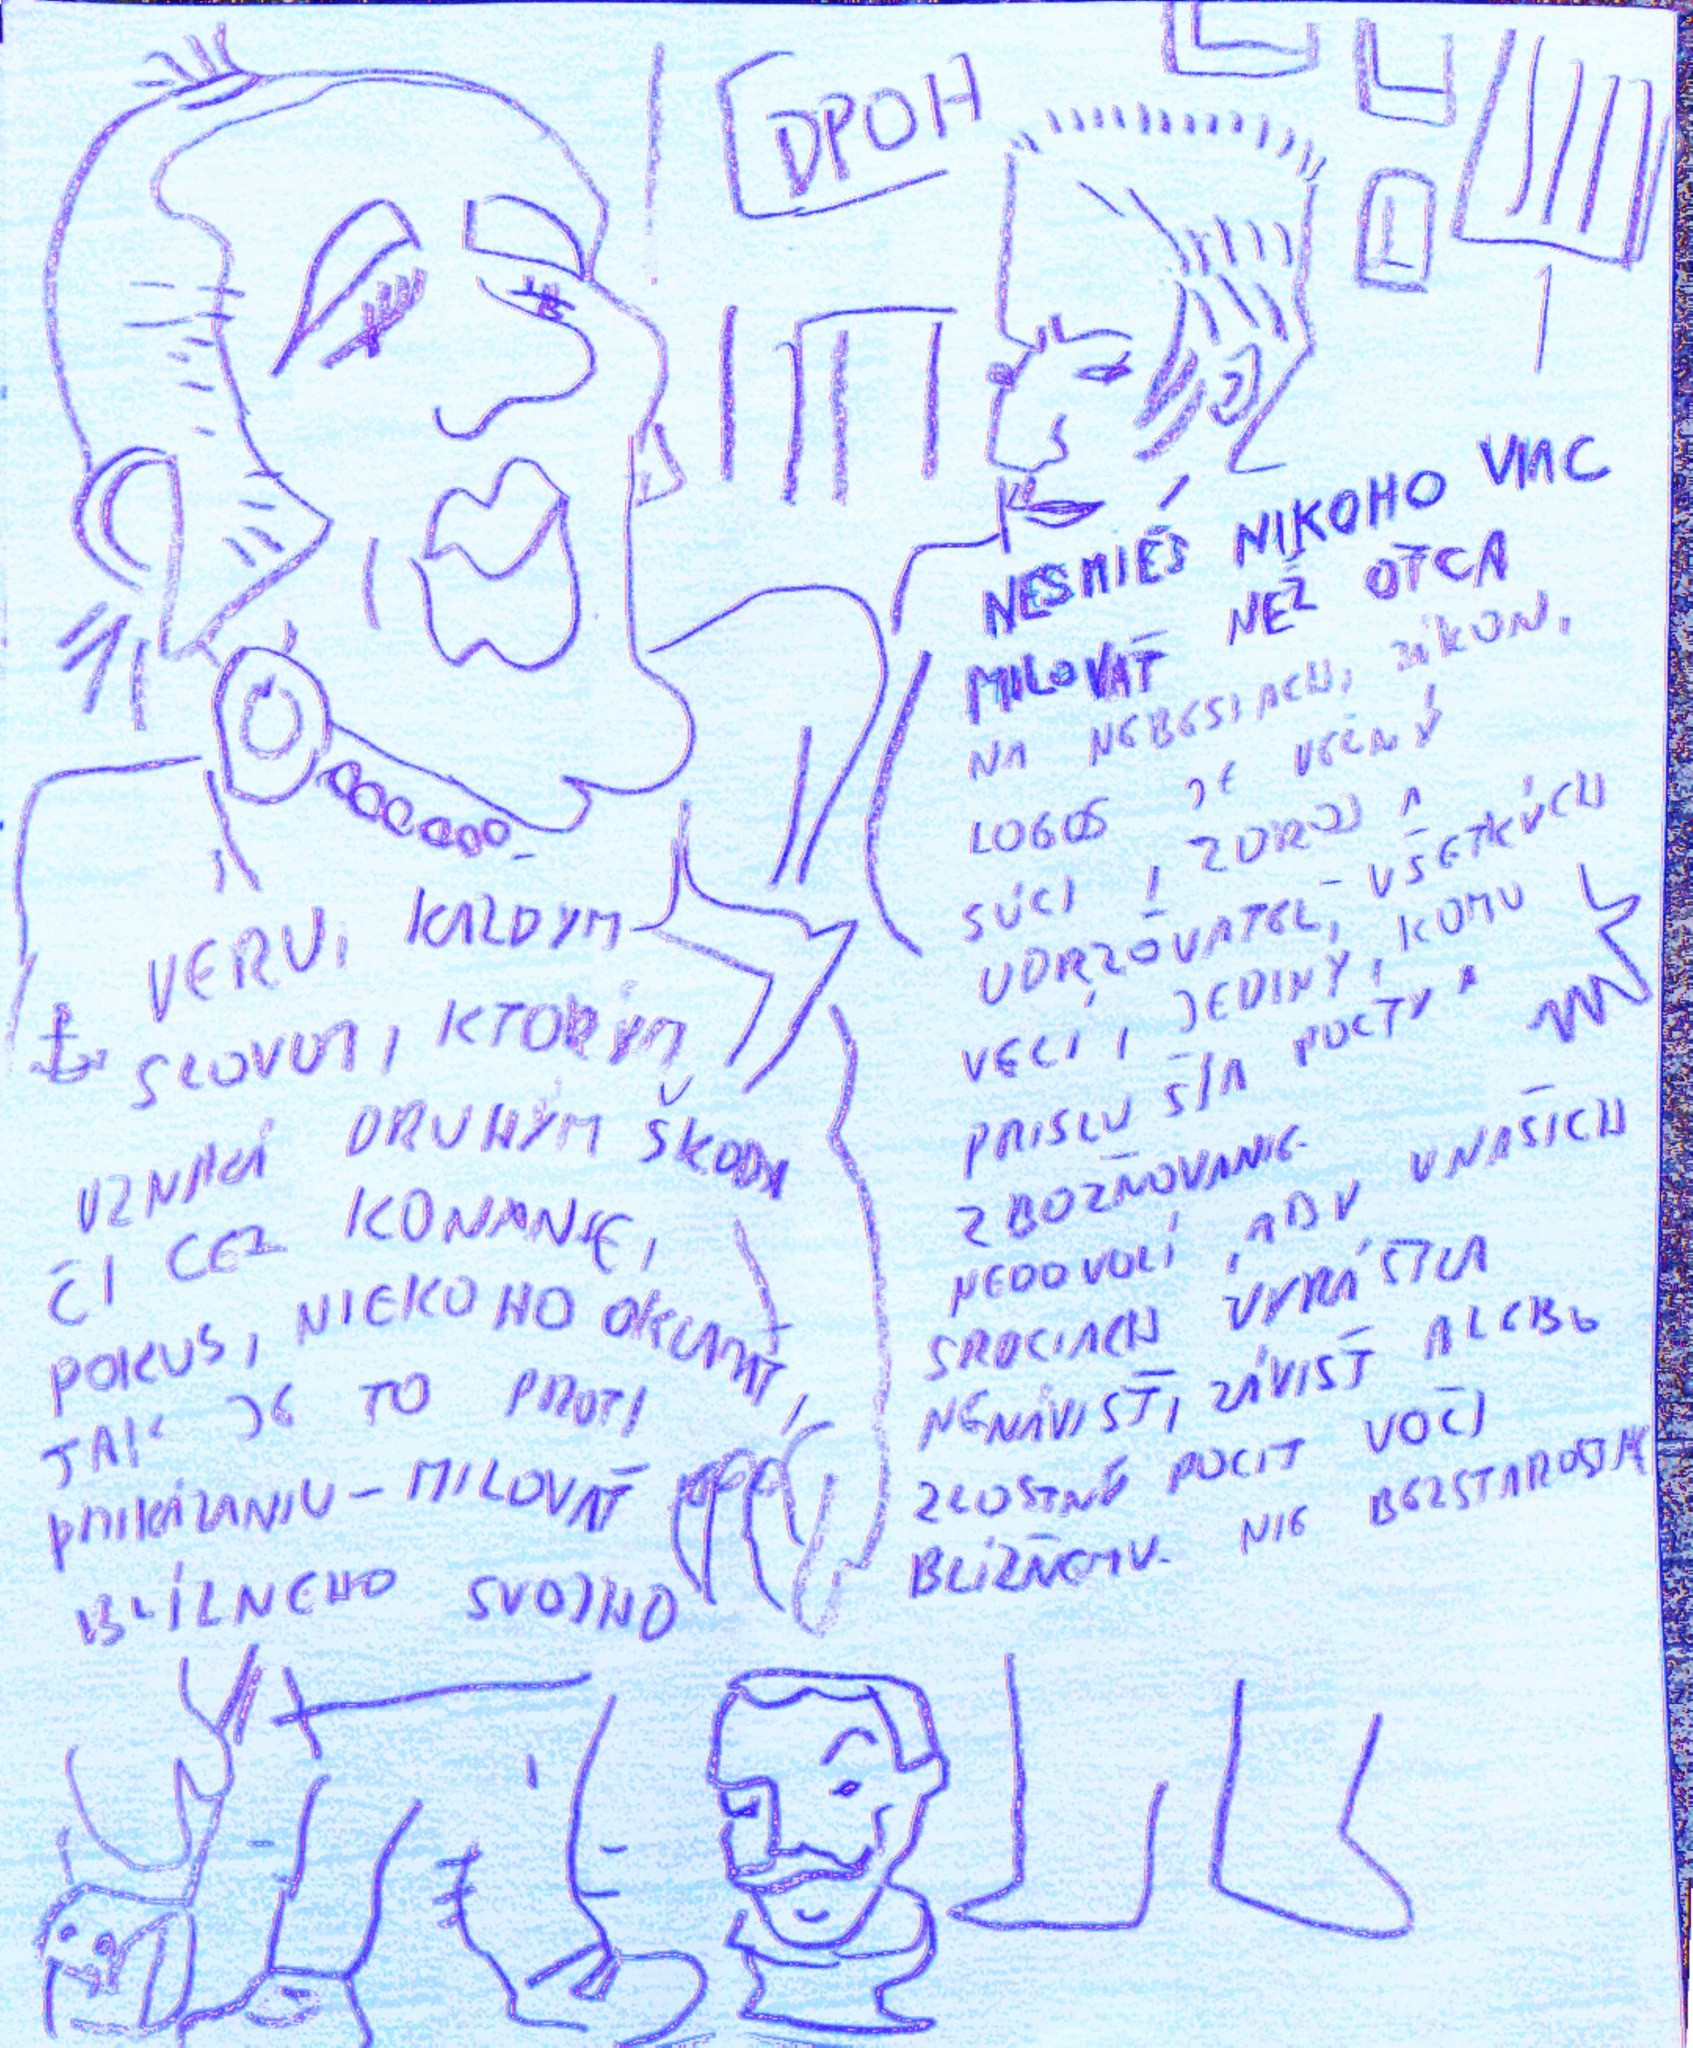 DPOH
VERU, KAŽDÝM
SLOVOM, KTORÝM
DRUHÝM ŠKODY
ČI CEZ KONANIE,
POKUS, NIEKOHO OKLAMAŤ,
TAK JE TO PROTI
PRIKÁZANIU - MILOVAŤ
BLÍZNEHO SVOJHO
NESMIEŠ NIKOHO VIAC
MILOVAŤ NEŽ OTCA
NA NEBESIACH, ZÁKON,
LOGOS JE VEČNÝ
SÚCI, ZDROJ A
UDRŽOVATEL, VŠETKÝCH
VECÍ, JEDINÝ, KOMU
POCTY A
ZBOŽŇOVANIE
NEDOVOLÍ, ABY V NAŠICH
SRDCIACH VYRÁSTLA
NENÁVISŤ, ZÁVISŤ ALEBO
ZLOSTNÉ POCIT VOČI
BLÍZŇEMU. NIE